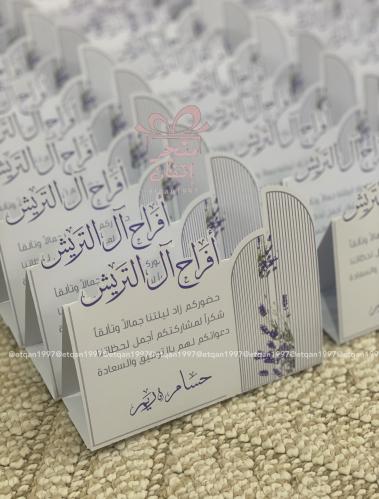 متجر
إتقان
etqan1997
أفراح آل التريّش
حضوركم زاد ليلتنا جمالاً وتألقاً
شكراً لمشاركتكم أجمل لحظاتنا
دعواتكم لهم بالتوفيق والسعادة
حسام & ريم
@etqan1997@etqan1997@etqan1997@etqan1997@etqan1997@etqan1997